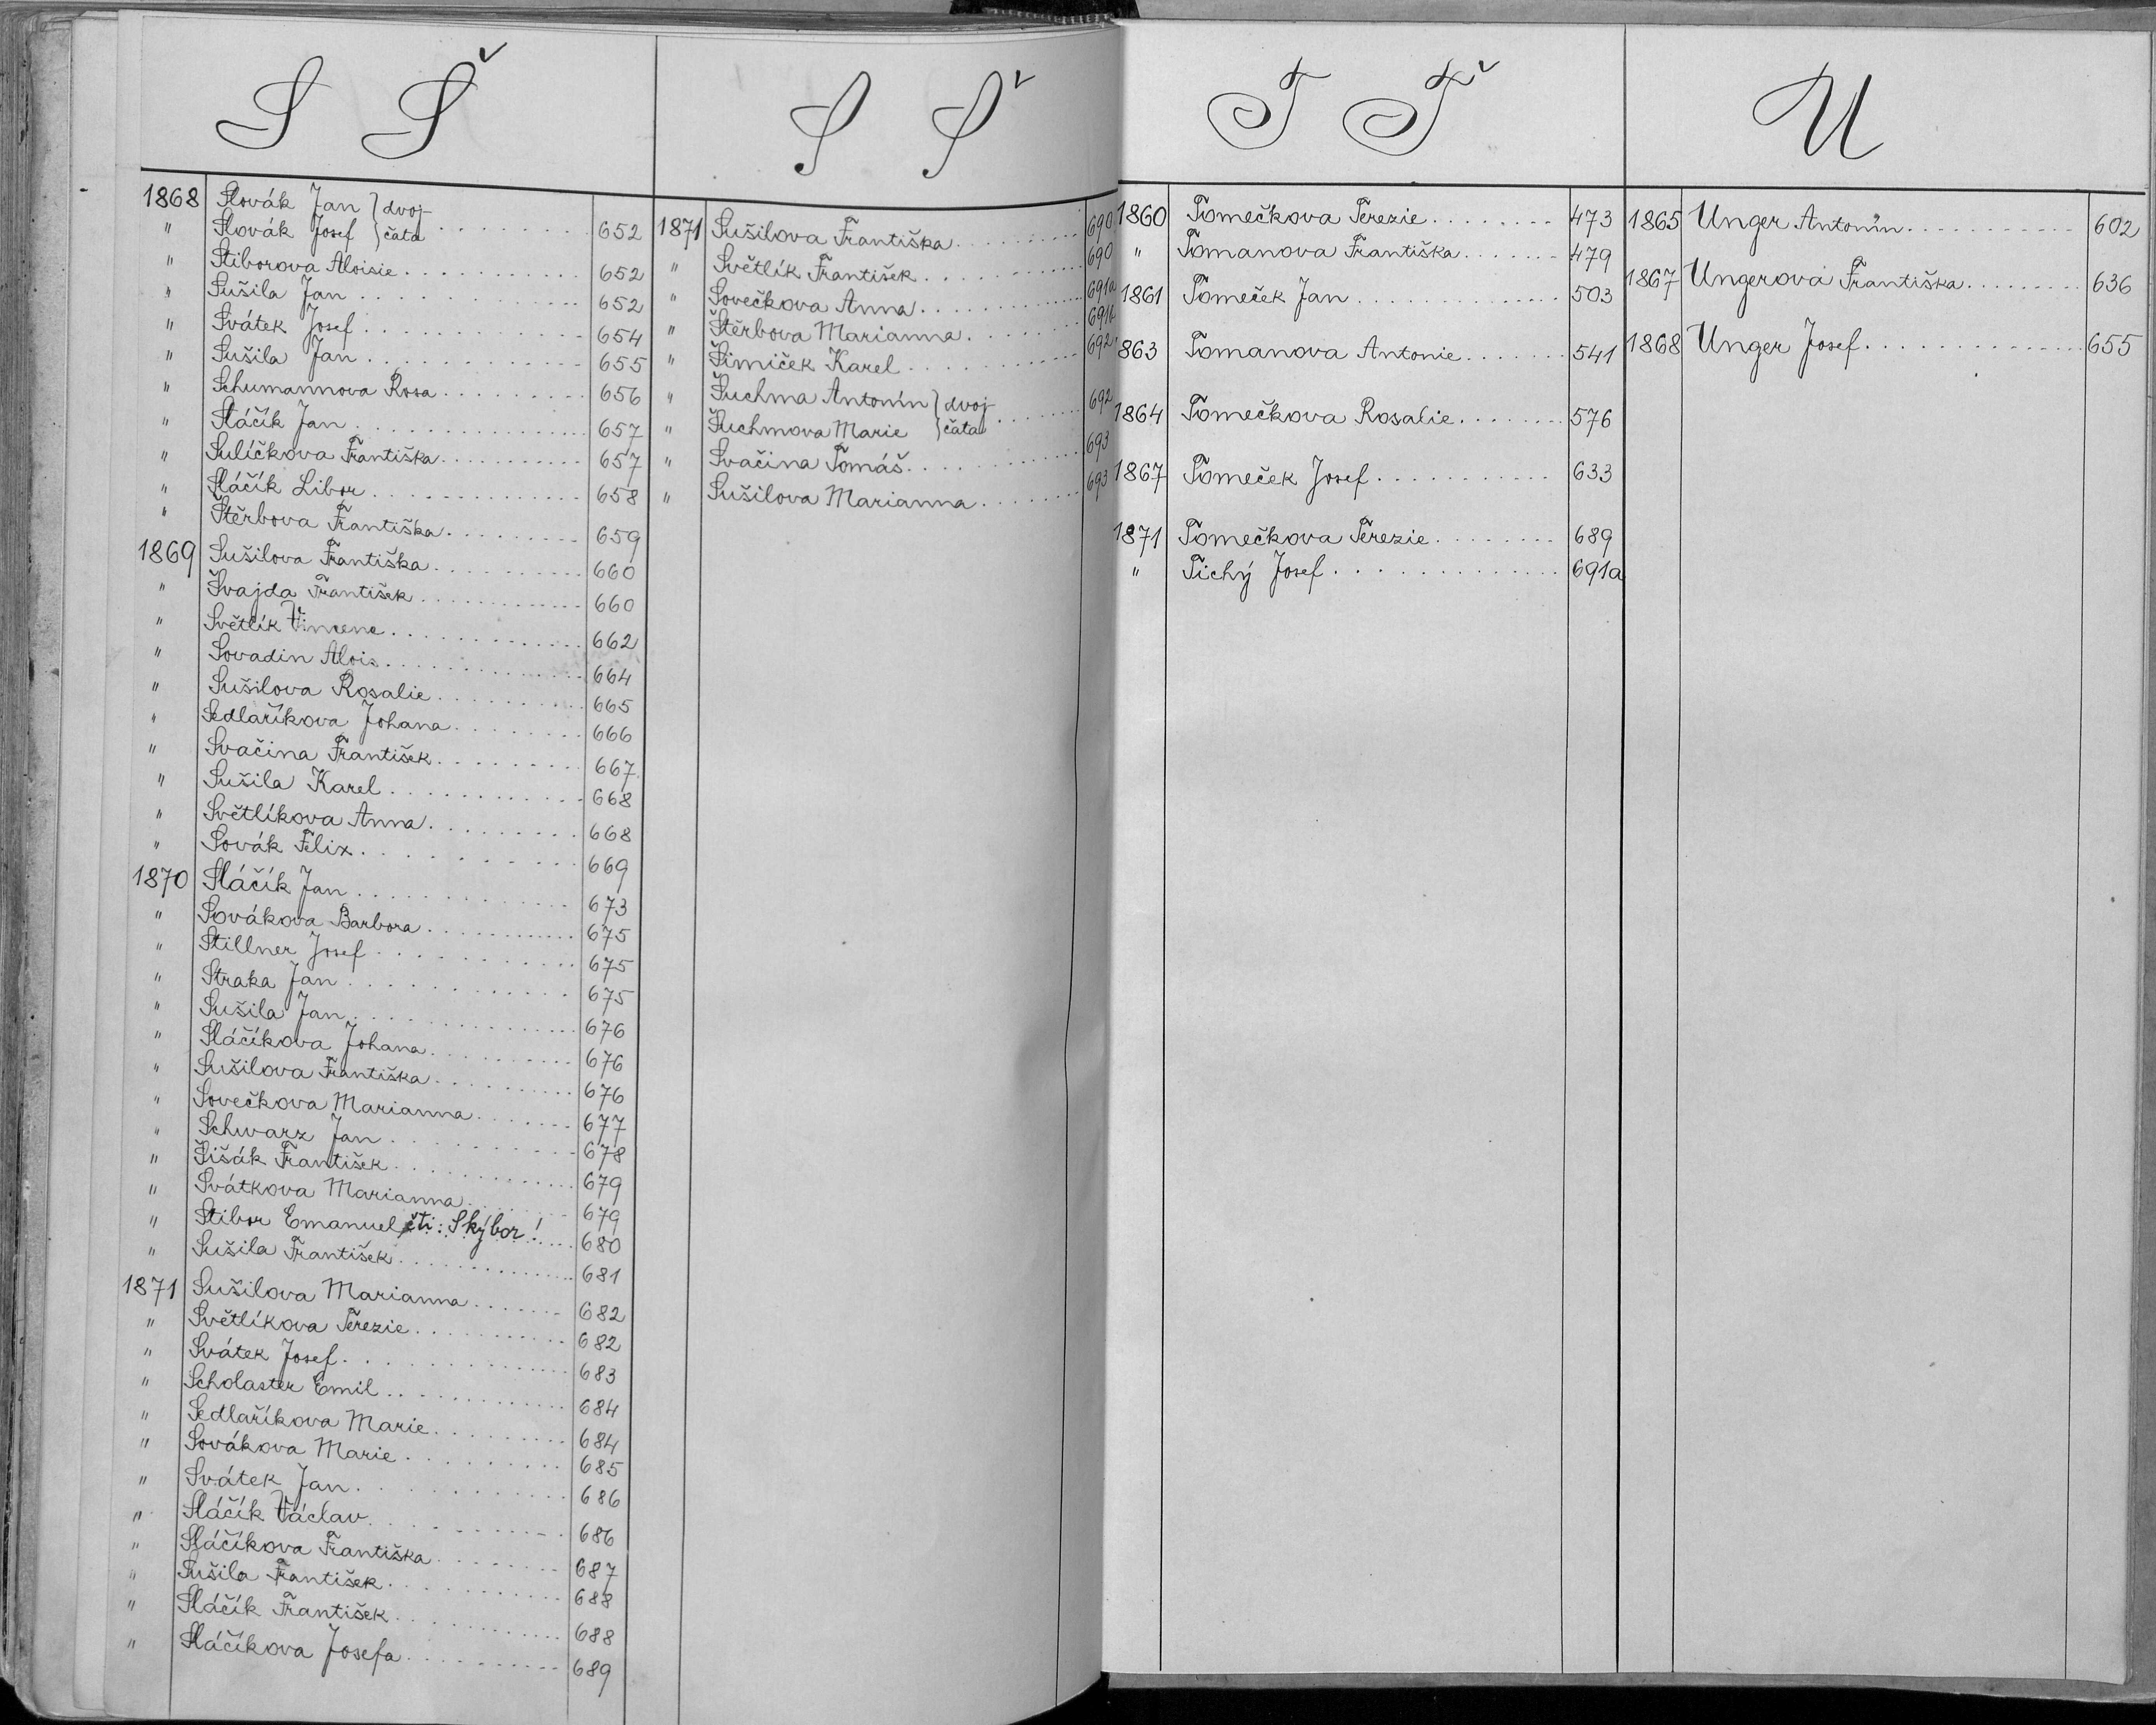 S Š
1868 Slovák Jan } dvoj-
" Slovák Josef } čata 652
" Stiborova Aloisie 652
" Sušila Jan 652
" Svátek Josef 654
" Sušila Jan 655
" Schumannova Rosa 656
" Sláčík Jan 657
" Sulíčkova Františka 657
" Sláčík Libor 658
" Štěrbova Františka 659
1869 Sušilova Františka 660
" Švajda František 660
" Světlík Vincenc 662
" Sovadin Alois 664
" Sušilova Rosalie 665
" Sedlaříkova Johana 666
" Svačina František 667
" Sušila Karel 668
" Světlíkova Anna 668
" Sovák Felix 669
1870 Sláčík Jan 673
" Sovákova Barbora 675
" Stillner Josef 675
" Straka Jan 675
" Sušila Jan 676
" Sláčíkova Johana 676
" Sušilova Františka 676
" Sovečkova Marianna 677
" Schwarz Jan 678
" Šišák František 679
" Svátkova Marianna 679
" Stibor Emanuel čti: Skýbor! 680
" Sušila František 681
1871 Sušilova Marianna 682
" Světlíkova Terezie 682
" Svátek Josef 683
" Scholaster Emil 684
" Sedlaříkova Marie 684
" Sovákova Marie 685
" Svátek Jan 686
" Sláčík Václav 686
" Sláčíkova Františka 687
" Sušila František 688
" Sláčík František 688
" Sláčíkova Josefa 689
S Š
1871 Sušilova Františka 690
" Světlík František 690
" Sovečkova Anna 691a
" Štěrbova Marianna 691b
" Šimíček Karel 692
" Šuchma Antonín } dvoj-
" Šuchmova Marie } čata 692
" Svačina Tomáš 693
" Sušilova Marianna 693
T Ť
1860 Tomečkova Terezie 473
" Tomanova Františka 479
1861 Tomeček Jan 503
863 Tomanova Antonie 541
1864 Tomečkova Rosalie 576
1867 Tomeček Josef 633
1871 Tomečkova Terezie 689
" Tichý Josef 691a
U
1865 Unger Antonín 602
1867 Ungerova Františka 636
1868 Unger Josef 655